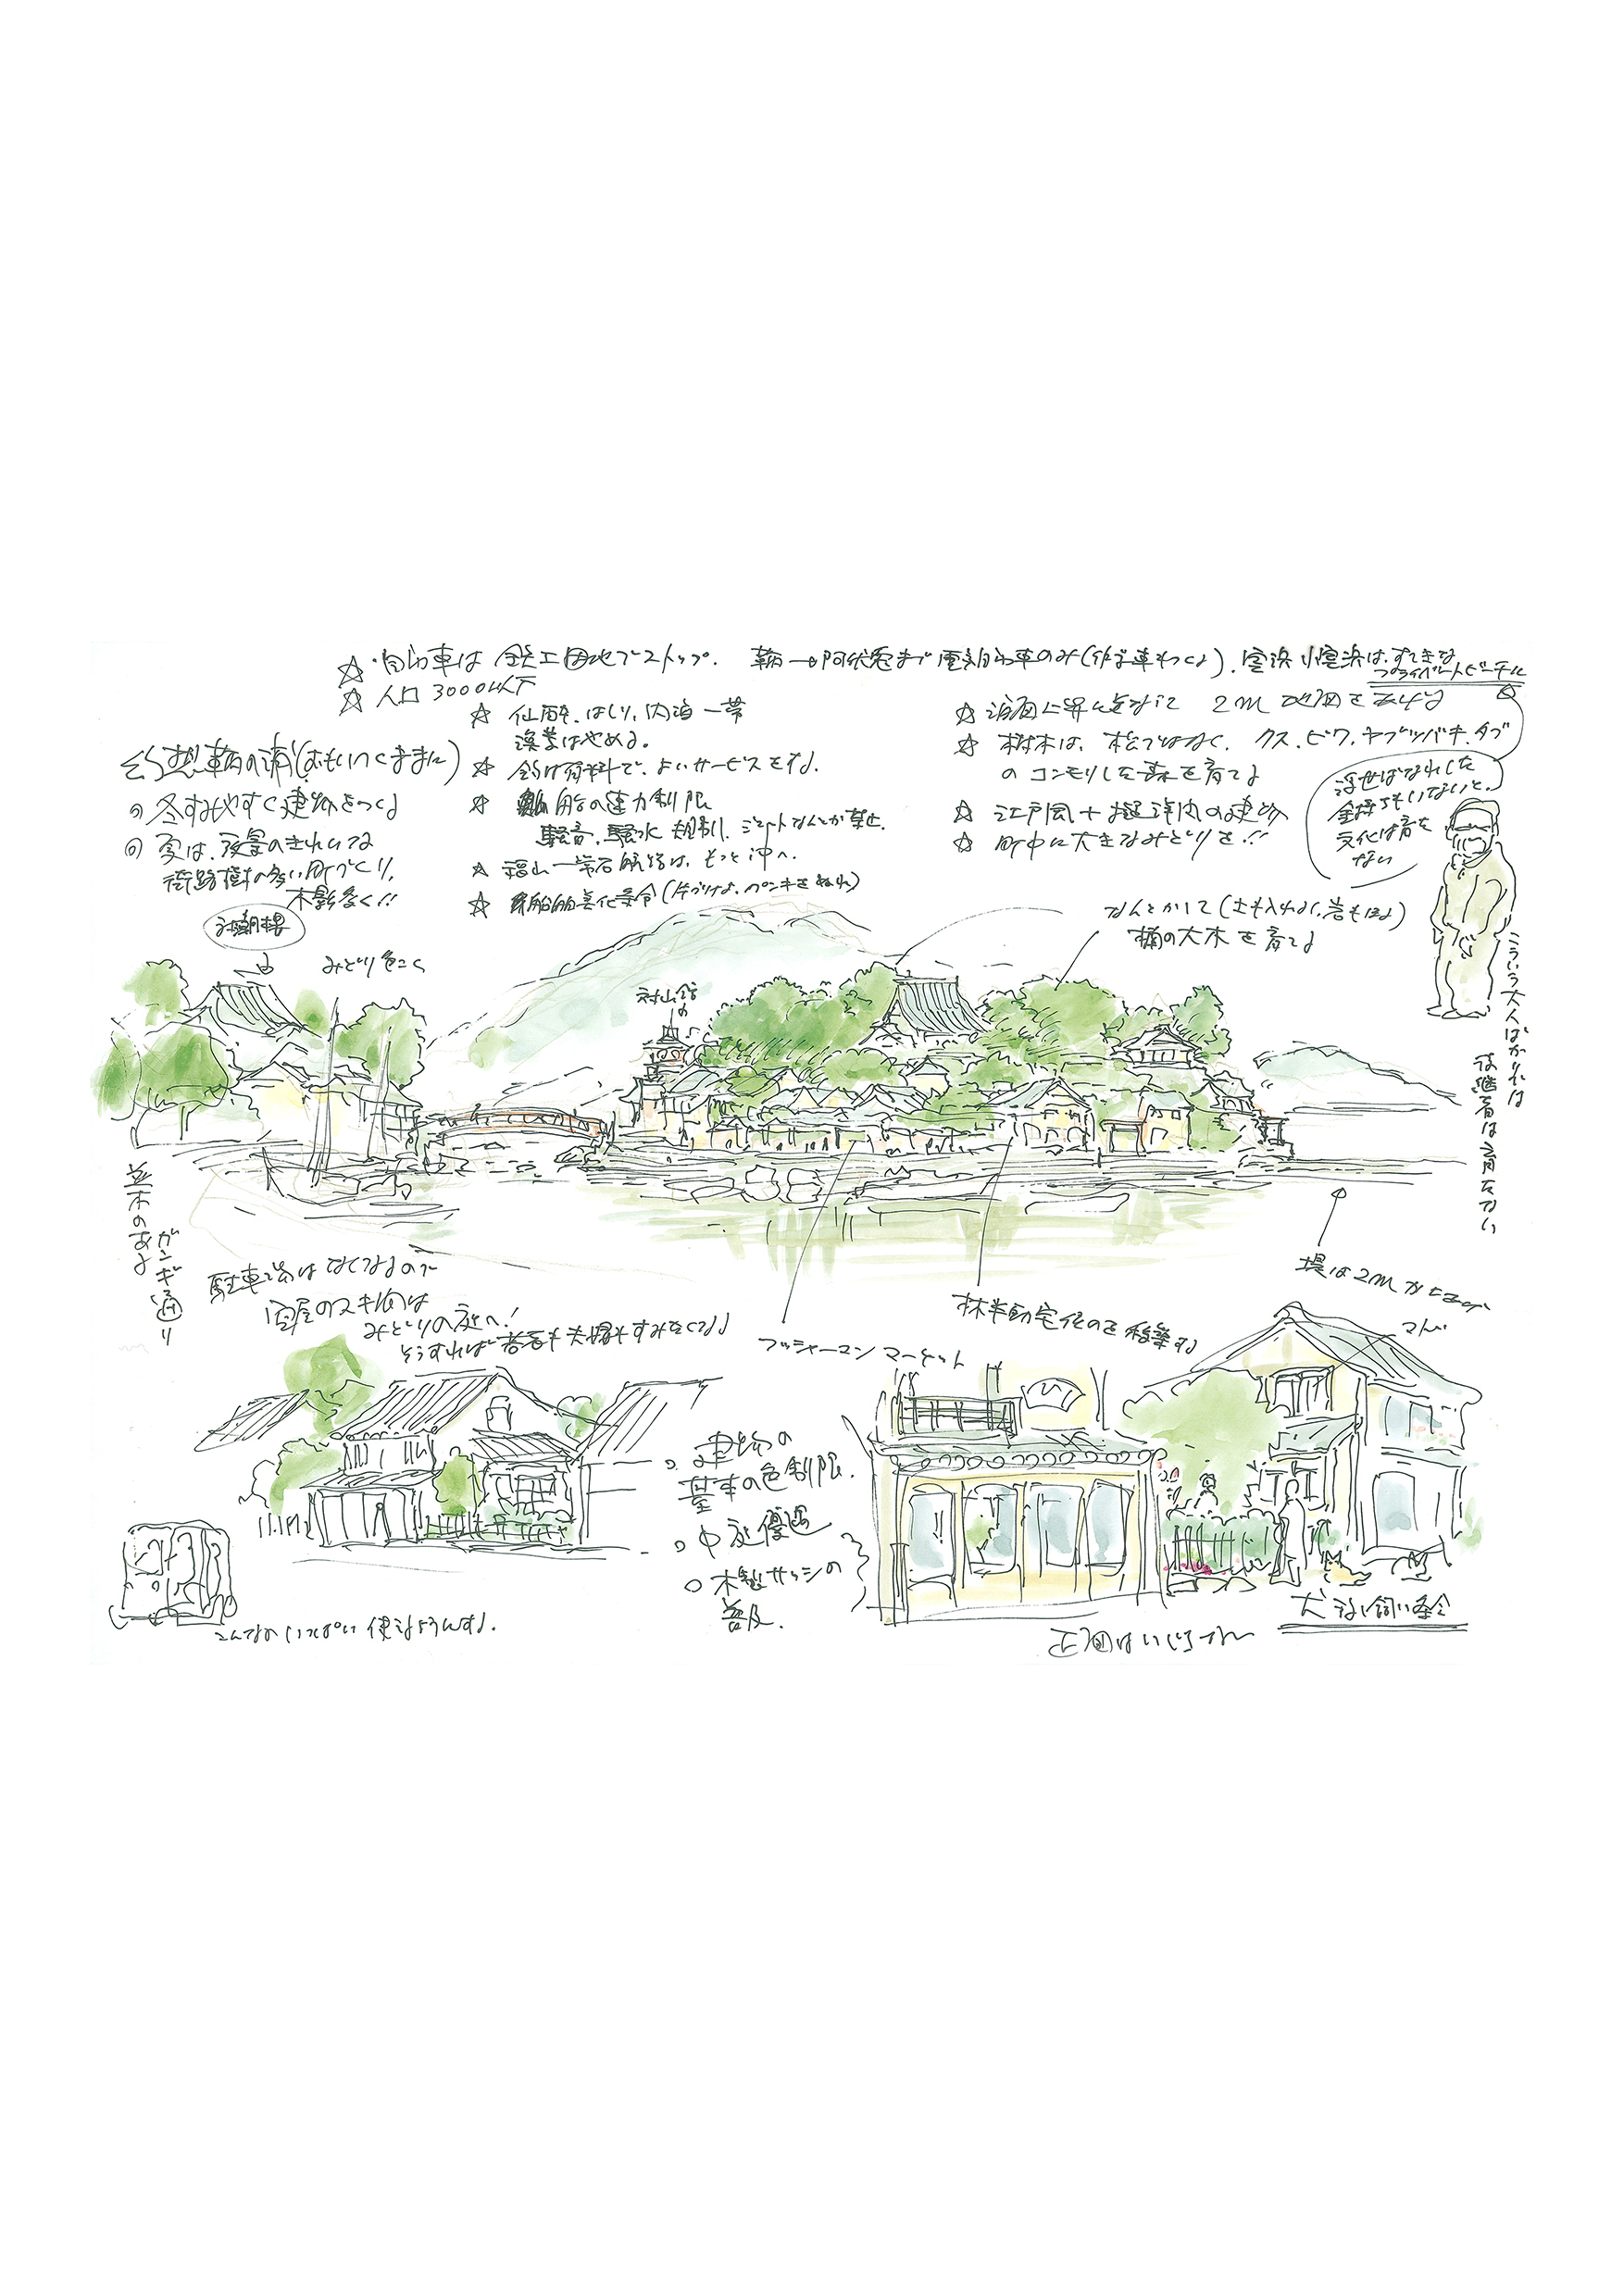 ☆ 自动車は 鉄工団地でストップ. 鞆―阿伏兎まで電気自动車のみ
☆ 人口 3000以下
☆ 仙酔. はしり. 内海一帯
漁業はやめる。
☆ 釣は有料で、よいサービスをする.
☆ 船の速力制限
騒音. 規制. ジェットなんか禁止.
☆ 福山―常石航路は. もっと沖へ.
☆ 船舶美化条令(片づけよ. ペンキをぬれ)
空想鞆の浦(おもいつくままに)
◎ 冬すみやすく建物をつくる
◎ 夏は、夜景のきれいな
街路樹の多い町づくり.
木影多く!!
☆ 海面上昇に備えて 2m 地面を上げる
☆ 樹木は、松ではなく、クス. ビワ. ヤブツバキ. タブ
のコンモリした森を育てる
☆ 江戸風+擬洋風の建物
☆ 町中に大きなみどりを!!
すてきな
プライベートビーチに
浮世ばなれした
金持ちもいないと.
文化は育た
ない
こういう大人ばかりでは
後継者は育たない
なんとかして(土も入れよ. 岩もほれ)
楠の大木を育てる
対潮楼
みどり色こく
対山館の
並木のある
ガンギ通り
駐車場はなくなるので
家屋のスキ間は
みどりの庭へ!
そうすれば若者も夫婦もすみたくなる
フッシャーマン マーケット
林半助宅他のを移築する
堤は2mかさ上げ
マド
○ 建物の
基本の色制限.
○ 中庭優遇
○ 木製サッシの
普及.
こんなのいっぱい使えるようにする.
正面はいじらない
犬はなし飼い条令